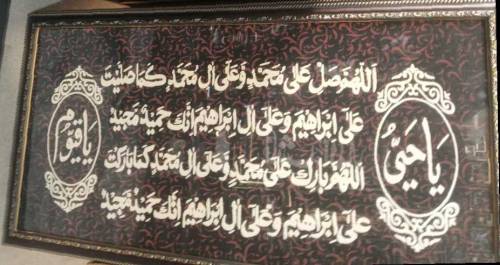 يَا حَيُّ
اَللّٰهُمَّ صَلِّ عَلٰى مُحَمَّدٍ وَّعَلٰى اٰلِ مُحَمَّدٍ كَمَا صَلَّيْتَ
عَلٰى اِبْرَاهِيْمَ وَعَلٰى اٰلِ اِبْرَاهِيْمَ اِنَّكَ حَمِيْدٌ مَّجِيْدٌ
اَللّٰهُمَّ بَارِكْ عَلٰى مُحَمَّدٍ وَّعَلٰى اٰلِ مُحَمَّدٍ كَمَا بَارَكْتَ
عَلٰى اِبْرَاهِيْمَ وَعَلٰى اٰلِ اِبْرَاهِيْمَ اِنَّكَ حَمِيْدٌ مَّجِيْدٌ
يَا قَيُّوْمُ